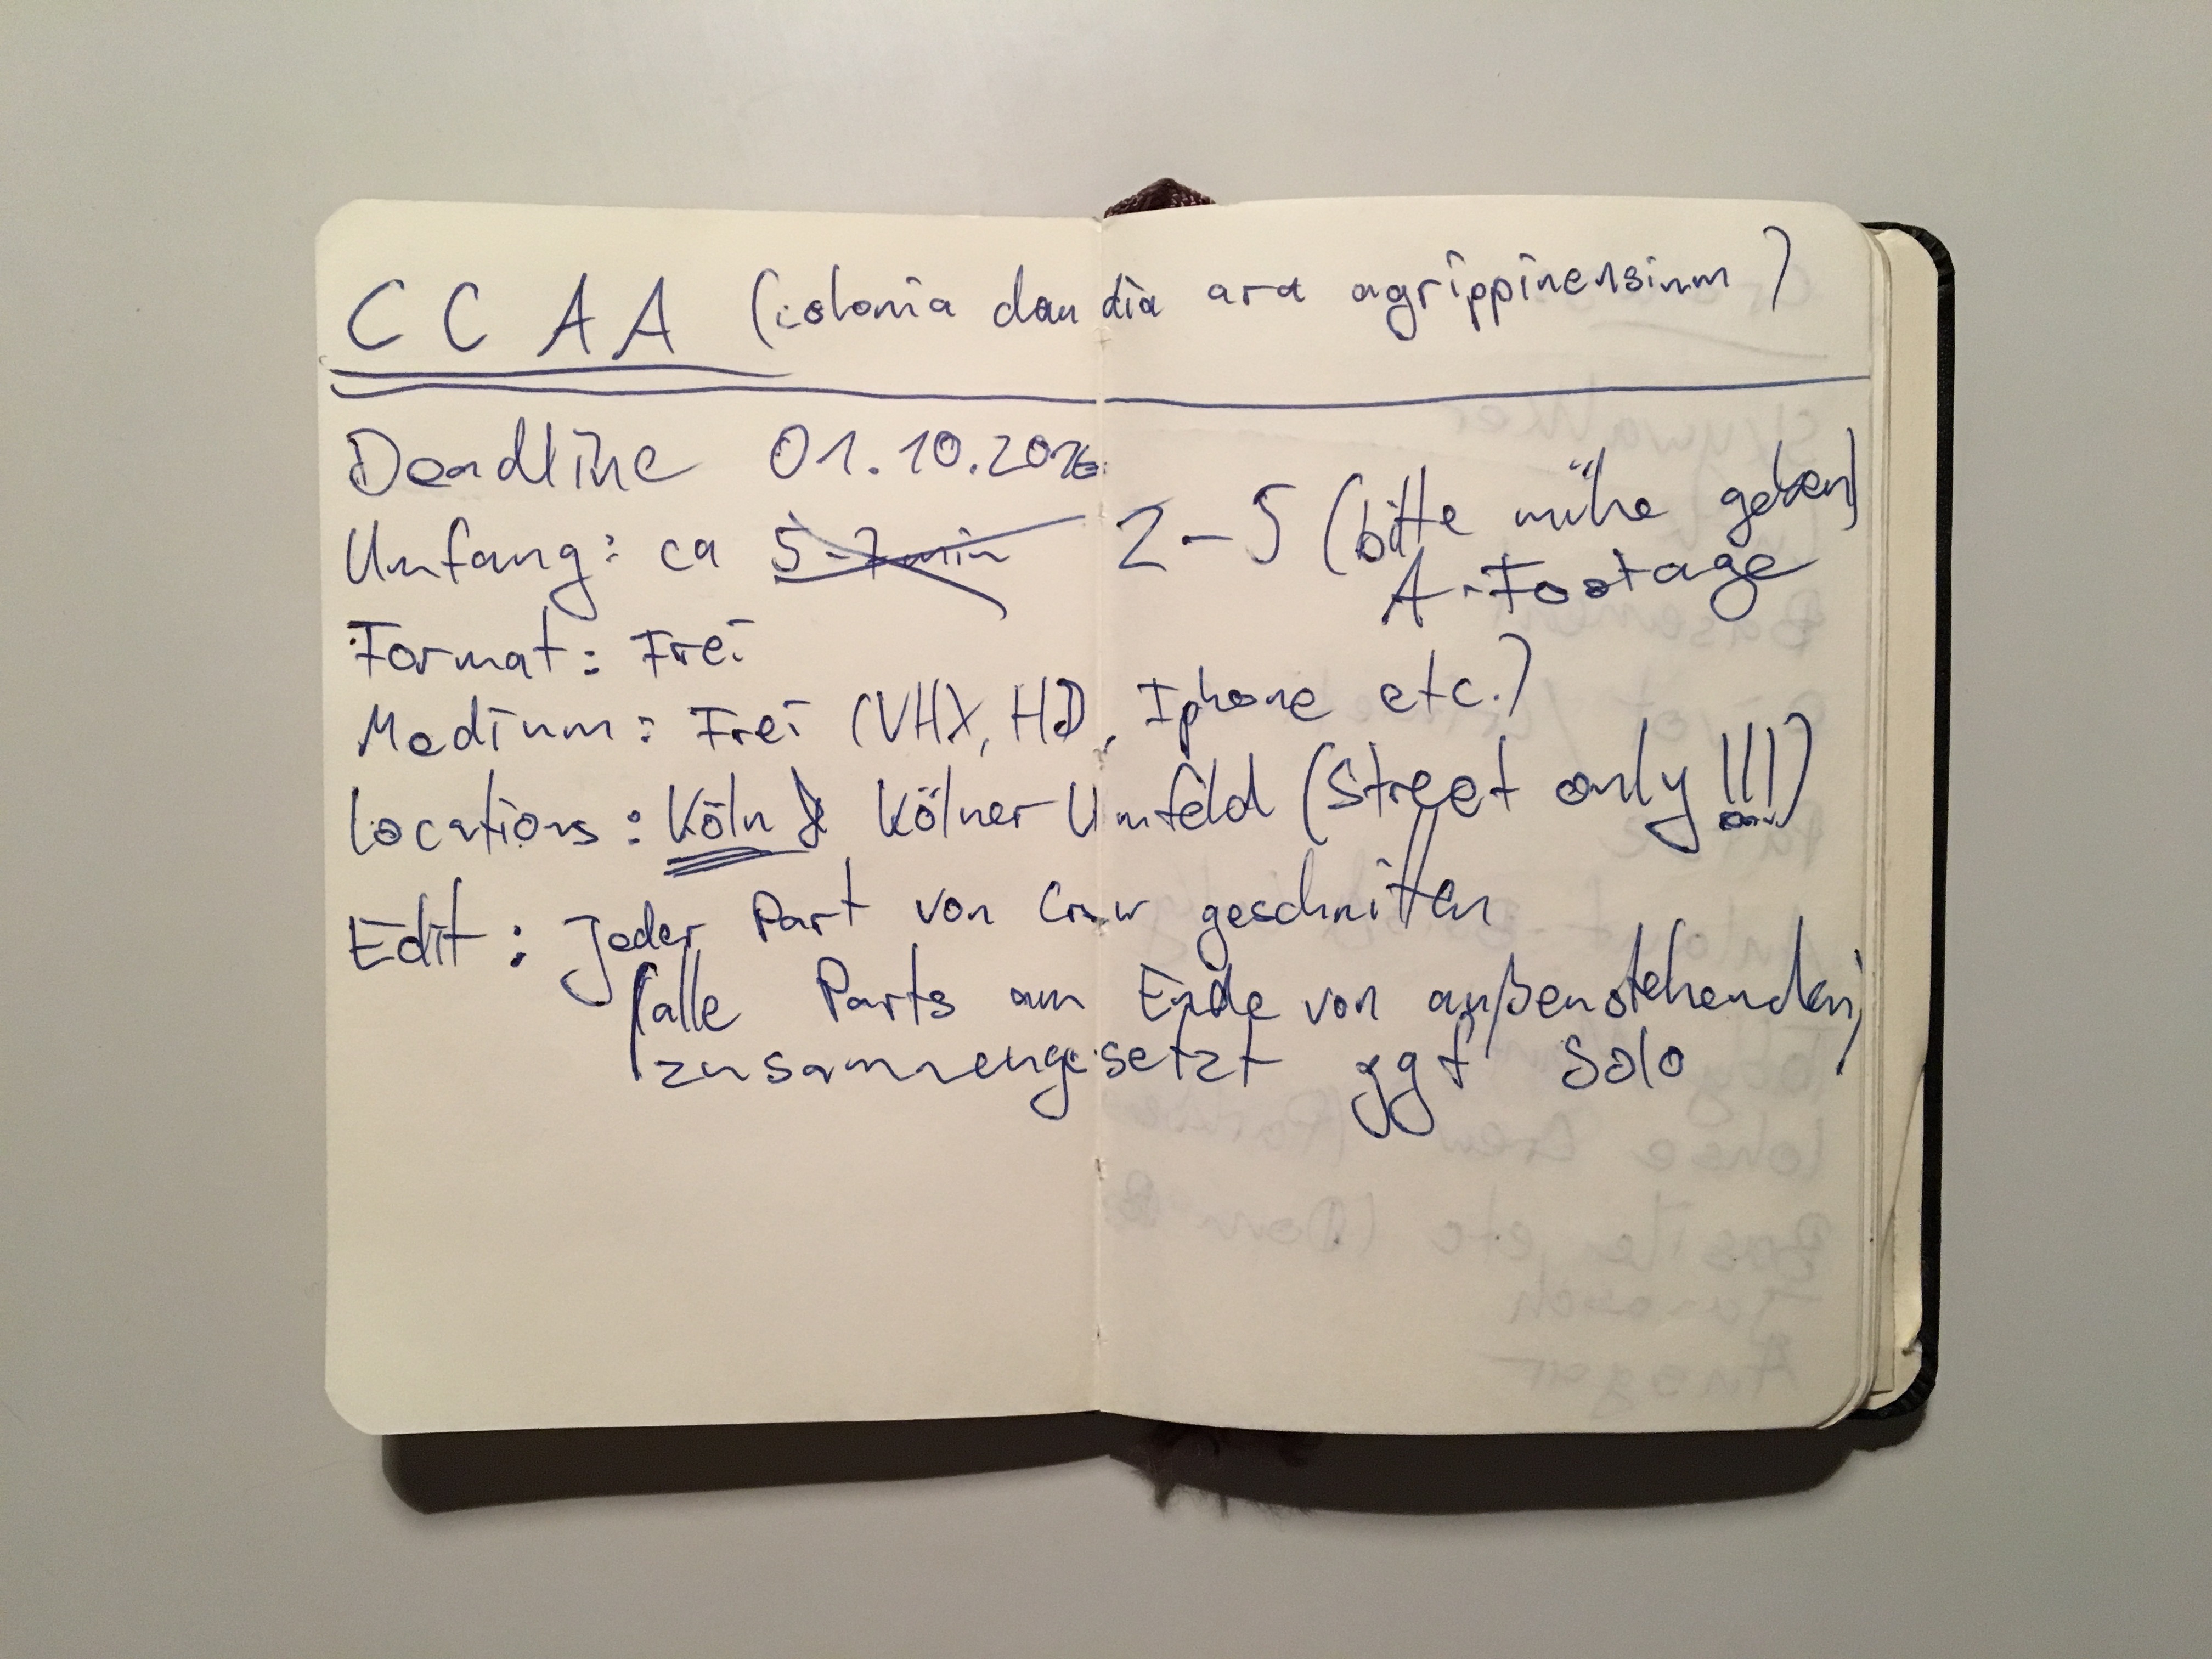 CCAA (colonia claudia ara agrippinensium)
Deadline 01.10.2016
Umfang: ca 5-7 min 2-5 (bitte mühe geben)
A-Footage
Format: Frei
Medium: Frei (VHX, HD, Iphone etc.)
Locations: Köln & Kölner Umfeld (Street only!!!)
Edit: Jeder Part von Crew geschnitten
(alle Parts am Ende von außenstehenden
zusammengesetzt ggf solo)